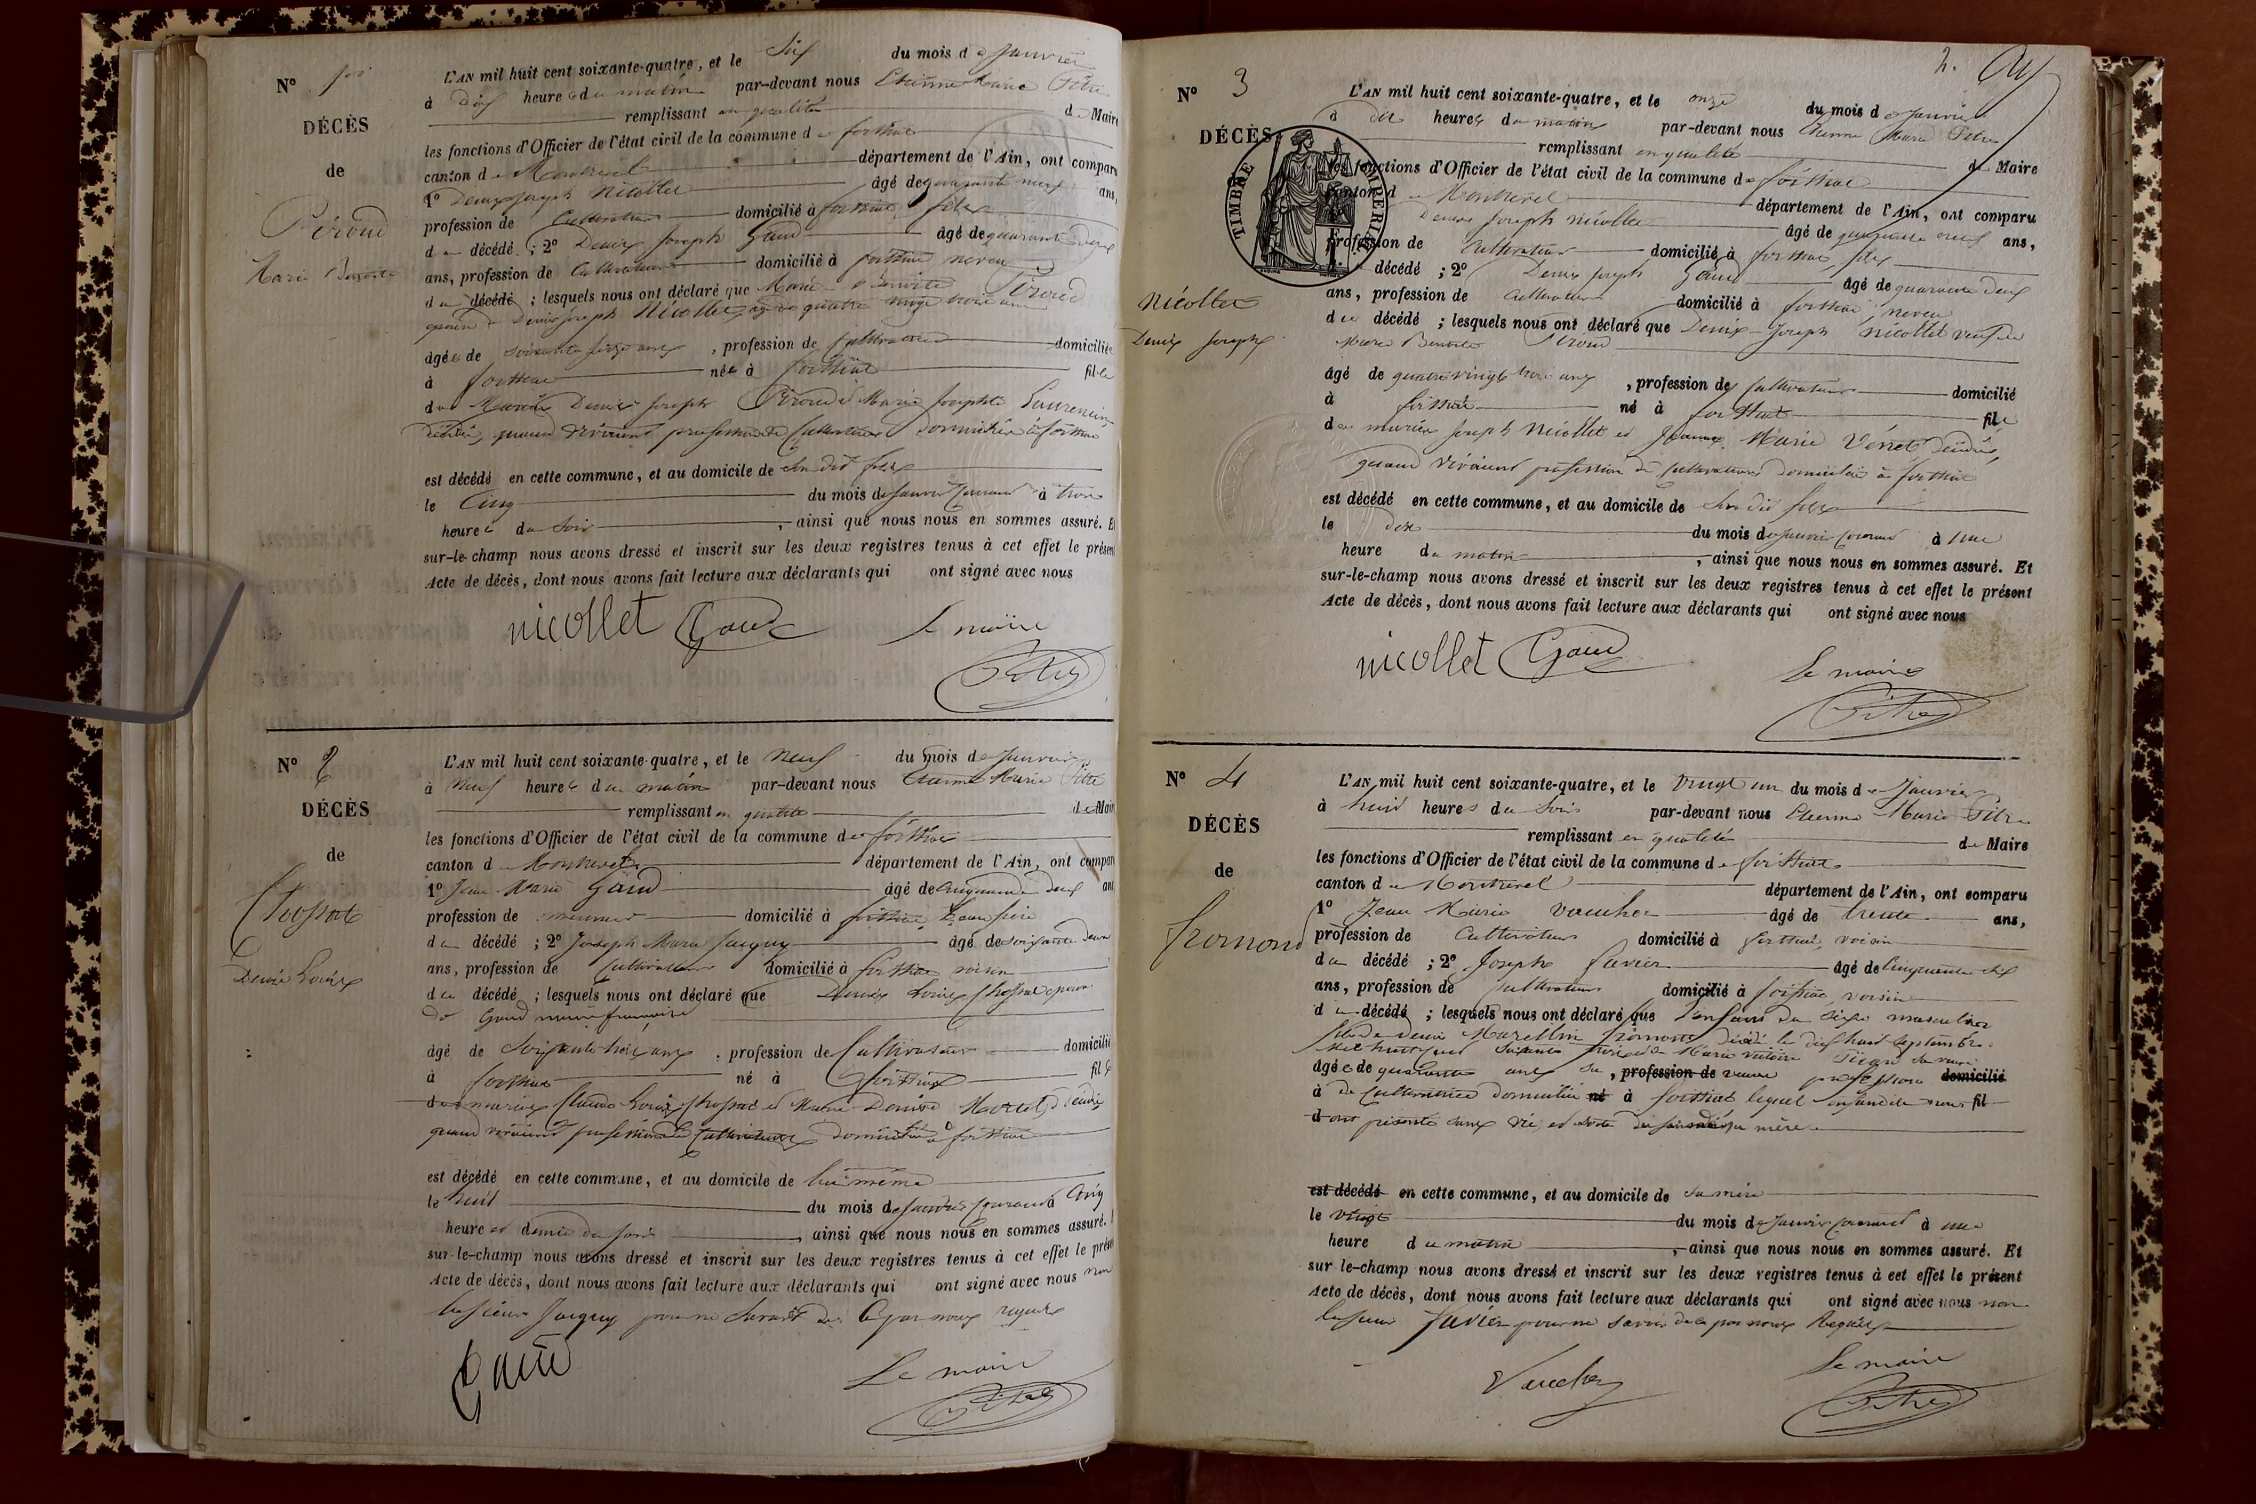 N° 1er
DÉCÈS
de
Péroud
Marie Benoite
L'AN mil huit cent soixante-quatre, et le Six du mois de Janvier
à Dix heures du matin par-devant nous Etienne Marie Pitre
remplissant en qualité de Maire
les fonctions d'Officier de l'état civil de la commune de forthiat
canton de Montrevel département de l'Ain, ont comparu
1° Denis Joseph Nicollet âgé de quarante neuf ans,
profession de Cultivateur domicilié à forthiat fils
d décédé ; 2° Denis Joseph Gaud âgé de quarante deux
ans, profession de Cultivateur domicilié à forthiat neveu
d décédé ; lesquels nous ont déclaré que Marie Benoite Péroud
épouse de Denis Joseph Nicollet, âgé de quatre vingt trois ans
âgée de soixante seize ans, profession de Cultivatrice domiciliée
à forthiat née à forthiat fille
des Mariés Denis Joseph Péroud et Marie Josephte Laurencin
décédés, quand vivaient profession de Cultivateurs domiciliés à forthiat
est décédé en cette commune, et au domicile de Son dit fils
le Cinq du mois de Janvier Courant à trois
heures du Soir, ainsi que nous nous en sommes assuré. Et
sur-le-champ nous avons dressé et inscrit sur les deux registres tenus à cet effet le présent
Acte de décès, dont nous avons fait lecture aux déclarants qui ont signé avec nous
nicollet Gaud Le maire
Pitre
N° 2
DÉCÈS
de
Chossat
Denis Louis
L'AN mil huit cent soixante-quatre, et le Neuf du mois de Janvier
à Neuf heures du matin par-devant nous Etienne Marie Pitre
remplissant en qualité de Maire
les fonctions d'Officier de l'état civil de la commune de forthiat
canton de Montrevel département de l'Ain, ont comparu
1° Jean Marie Gaud âgé de Cinquante deux ans
profession de domicilié à forthiat Beau frère
du décédé ; 2° Joseph Marie Jacquy âgé de soixante deux
ans, profession de Cultivateur domicilié à forthiat voisin
du décédé ; lesquels nous ont déclaré que Denis Louis Chossat époux
de Gaud
âgé de Soixante trois ans, profession de Cultivateur domicilié
à forthiat né à forthiat fils
des mariés Claude Louis Chossat et Marie Denise Morel décédés
quand vivaient profession de Cultivateurs domiciliés à forthiat
est décédé en cette commune, et au domicile de lui même
le huit du mois de Janvier Courant à Cinq
heures et demie du soir, ainsi que nous nous en sommes assuré.
sur-le-champ nous avons dressé et inscrit sur les deux registres tenus à cet effet le présent
Acte de décès, dont nous avons fait lecture aux déclarants qui ont signé avec nous non
le sieur Jacquy pour ne Savoir de ce par nous requis
Gaud
Le maire
Pitre
2.
N° 3
DÉCÈS
TIMBRE IMPERIAL
Nicollet
Denis Joseph
L'AN mil huit cent soixante-quatre, et le onze du mois de Janvier
à dix heures du matin par-devant nous Etienne Marie Pitre
remplissant en qualité de Maire
les fonctions d'Officier de l'état civil de la commune de forthiat
canton de Montrevel département de l'Ain, ont comparu
Denis Joseph Nicollet âgé de quarante neuf ans,
profession de Cultivateur domicilié à forthiat, fils
décédé ; 2° Denis Joseph Gaud âgé de quarante deux
ans, profession de Cultivateur domicilié à forthiat, neveu
du décédé ; lesquels nous ont déclaré que Denis Joseph Nicollet veuf de
Marie Benoite Péroud
âgé de quatre vingt trois ans, profession de Cultivateur domicilié
à forthiat né à forthiat fils
des mariés Joseph Nicollet et Jeanne Marie Verret décédés,
quand vivaient profession de Cultivateurs domiciliés à forthiat
est décédé en cette commune, et au domicile de Son dit fils
le dix du mois de Janvier Courant à une
heure du matin, ainsi que nous nous en sommes assuré. Et
sur-le-champ nous avons dressé et inscrit sur les deux registres tenus à cet effet le présent
Acte de décès, dont nous avons fait lecture aux déclarants qui ont signé avec nous
nicollet Gaud
Le maire
Pitre
N° 4
DÉCÈS
de
fromond
L'AN mil huit cent soixante-quatre, et le Vingt un du mois de Janvier
à huit heures du Soir par-devant nous Etienne Marie Pitre
remplissant en qualité de Maire
les fonctions d'Officier de l'état civil de la commune de forthiat
canton de Montrevel département de l'Ain, ont comparu
1° Jean Marie Vaucher âgé de trente ans,
profession de Cultivateur domicilié à forthiat, voisin
du décédé ; 2° Joseph favier âgé de Cinquante six
ans, profession de Cultivateur domicilié à forthiat, voisin
d décédé ; lesquels nous ont déclaré que l'enfant du sexe masculin
fils de Denis Marellin fromont décédé le dix huit Septembre
Mil huit cent Soixante trois et de Marie Victoire sa veuve
âgée de quarante ans, profession de veuve profession domicilié
à de Cultivatrice domiciliée né à forthiat lequel enfant ils nous fil
d ont présenté sans vie, et sorti du sein de sa mère
est décédé en cette commune, et au domicile de Sa mère
le vingt du mois de Janvier Courant à une
heure du matin, ainsi que nous nous en sommes assuré. Et
sur le-champ nous avons dressé et inscrit sur les deux registres tenus à cet effet le présent
Acte de décès, dont nous avons fait lecture aux déclarants qui ont signé avec nous non
le sieur favier pour ne savoir de ce par nous Requis
Vaucher
Le maire
Pitre